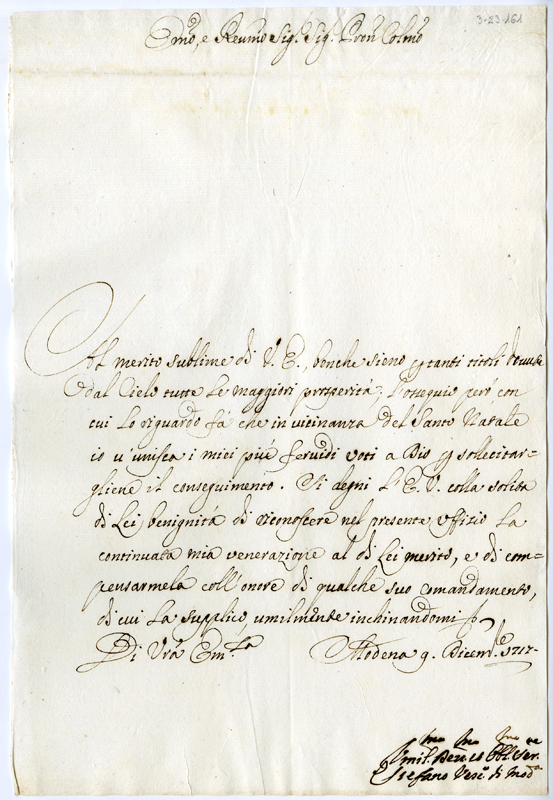 3-23-161
Emo, e Reumo Sig. Sig. Pron Colmo
Al merito sublime di V. E., benche sieno p tanti titoli douute
dal Cielo tutte le maggiori prosperità; l'ossequio però con
cui lo riguardo fà che in vicinanza del Santo Natale
io u'unisca i miei più feruidi voti a Dio p sollecitar=
gliene il conseguimento. Si degni l'E. V. colla solita
di Lei benignità di riconoscere nel presente Uffizio la
continuata mia venerazione al di Lei merito, e di com=
pensarmela coll'onore di qualche suo comandamento,
di cui la supplico, umilmente inchinandomi
Di Vra Em.za Modena 9. Dicem.e 1717.
Umil.mo Deu.mo et Obl.mo Ser.re
Stefano Vesc. di Mod.a